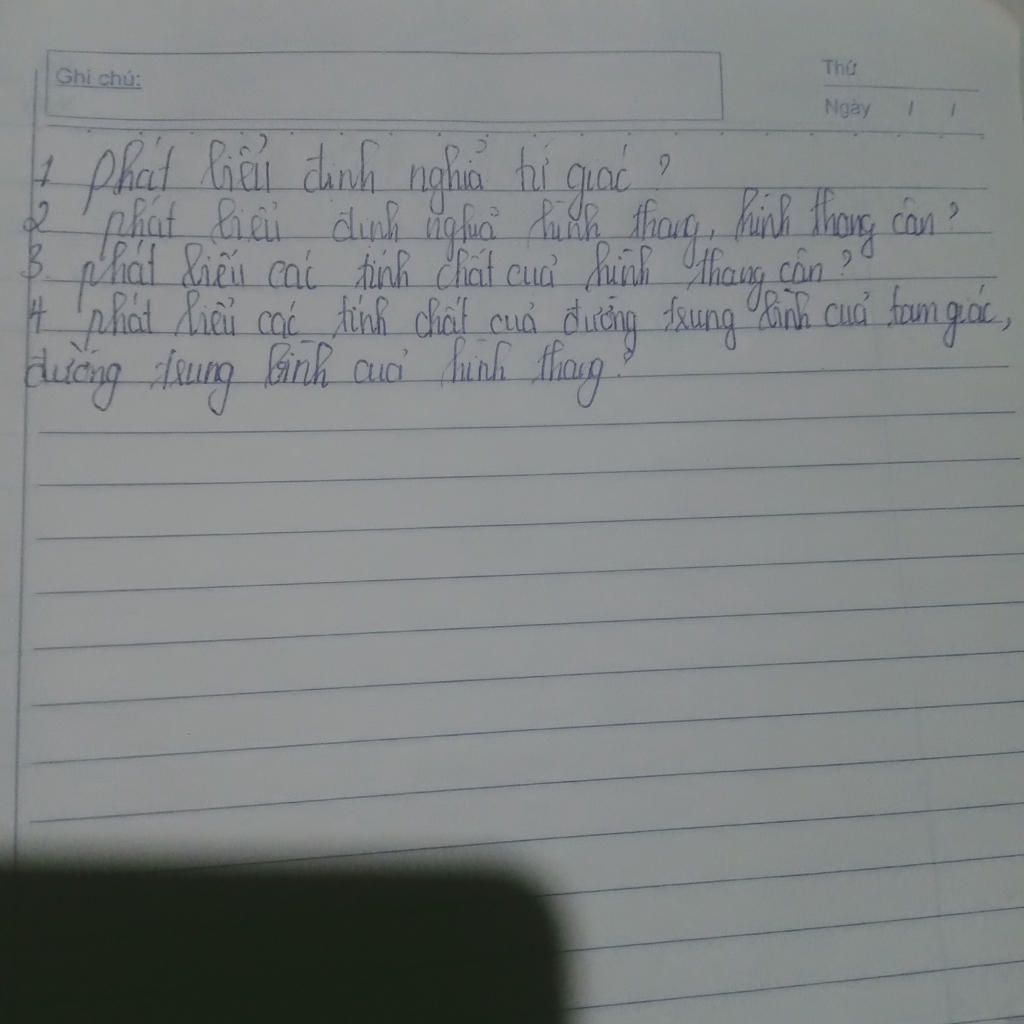 Ghi chú:
Thứ
Ngày / /
1 phát biểu định nghĩa tứ giác?
2 phát biểu định nghĩa hình thang, hình thang cân?
3 phát biểu các tính chất của hình thang cân?
4 phát biểu các tính chất của đường trung bình của tam giác,
đường trung bình của hình thang?